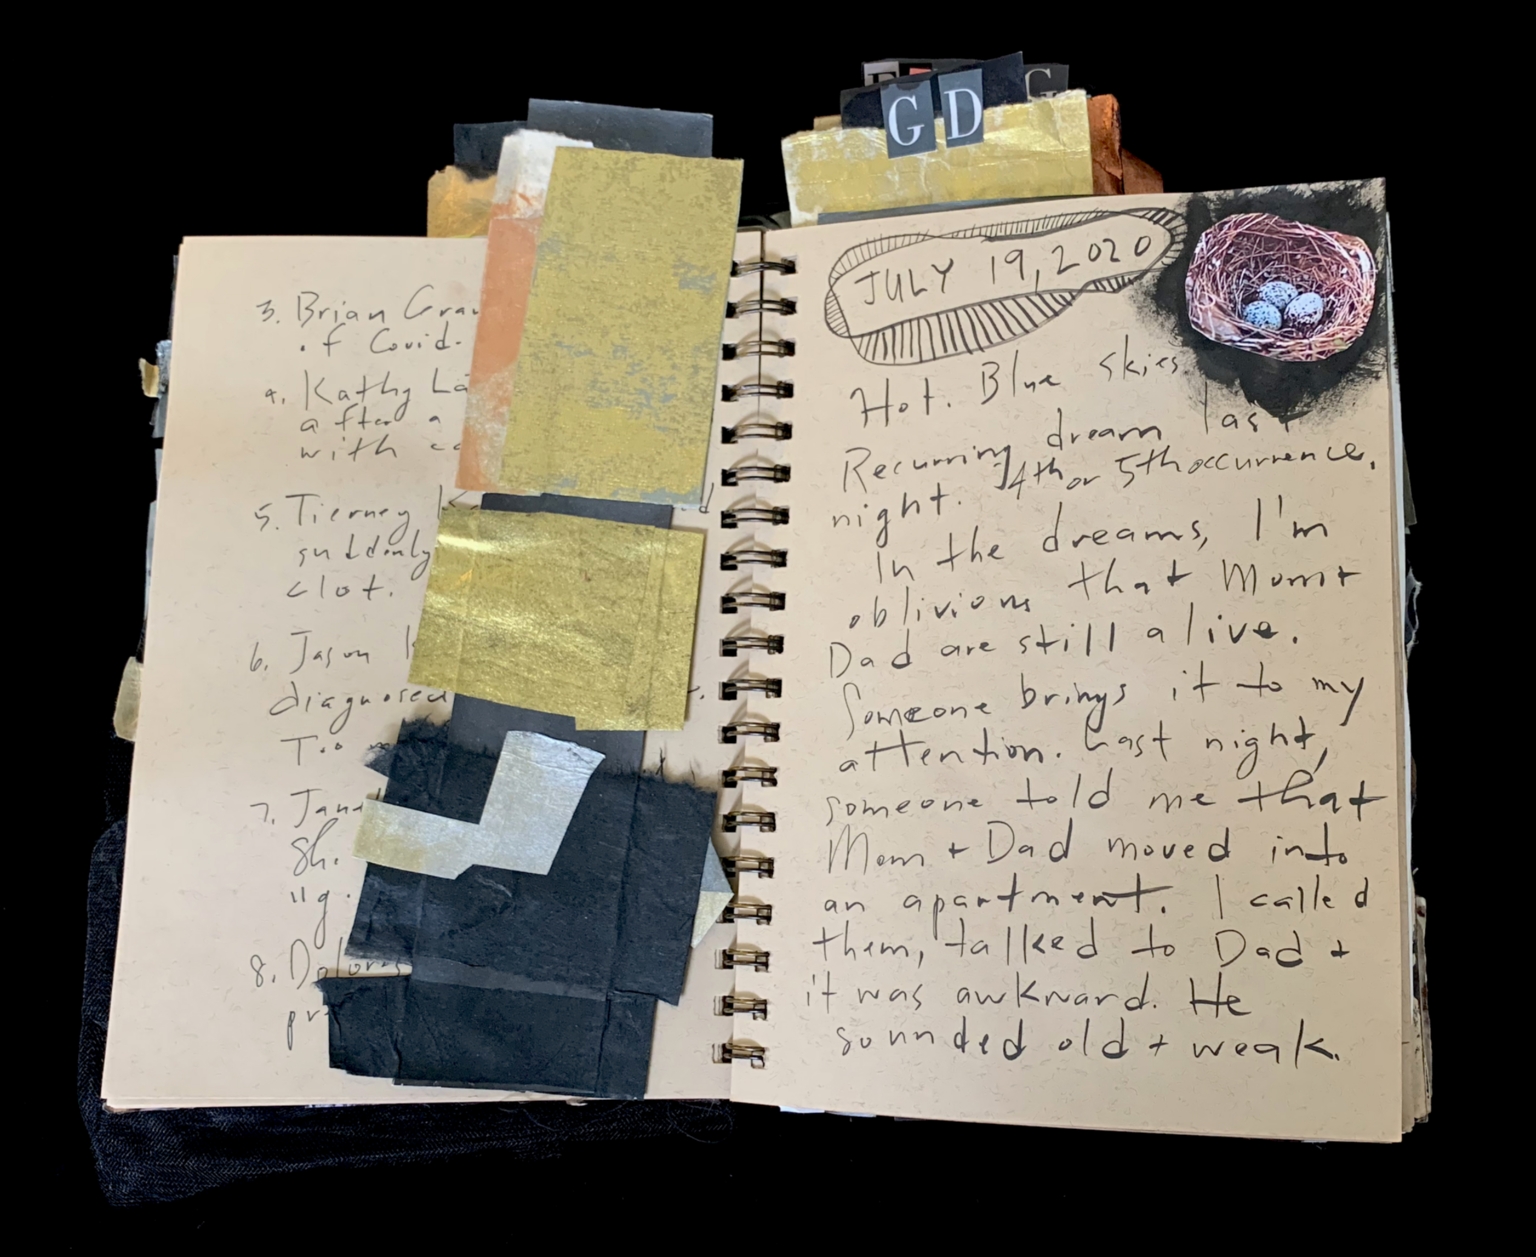 G D
G
3. Brian
of Covid-
4. Kathy
after a
with
5. Tierney
suddenly
clot.
6. Jason
diagnosed
Too
7.
Sh.
119.
8. Dolores
JULY 19, 2020
Hot. Blue skies
Recurring dream last
night. 4th or 5th occurrence.
In the dreams, I'm
oblivious that Mom +
Dad are still alive.
Someone brings it to my
attention. Last night,
someone told me that
Mom + Dad moved into
an apartment. I called
them, talked to Dad +
it was awkward. He
sounded old + weak.